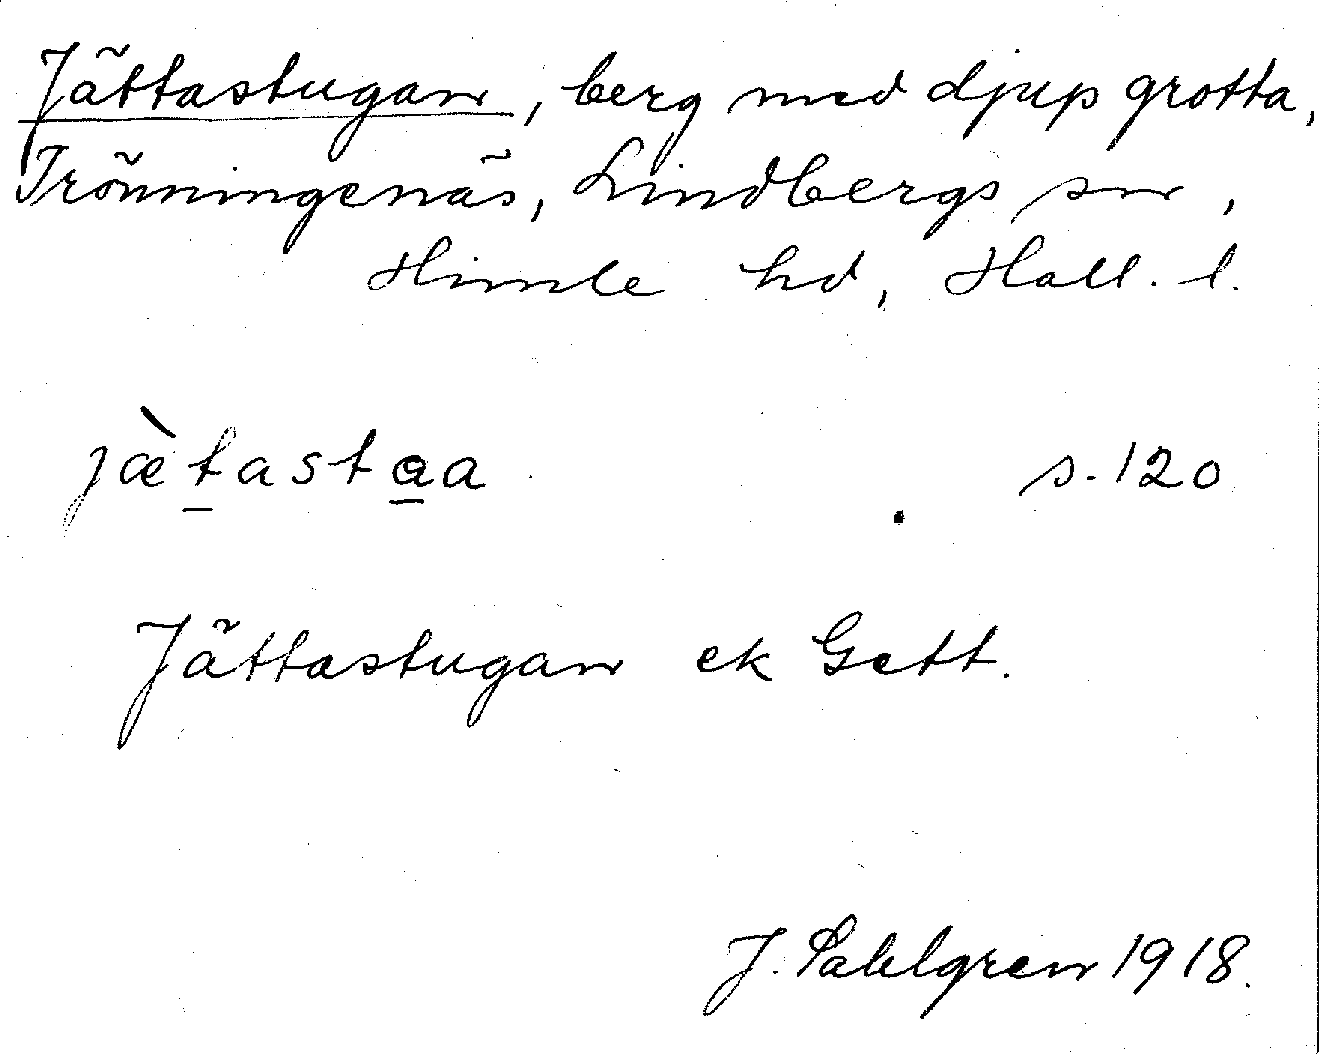 Jättastugan, berg med djup grotta,
Trönningenäs, Lindbergs sn,
Himle hd, Hall. l.
jæ̀tastaa s. 120
Jättastugan ek Gett.
J. Sahlgren 1918.